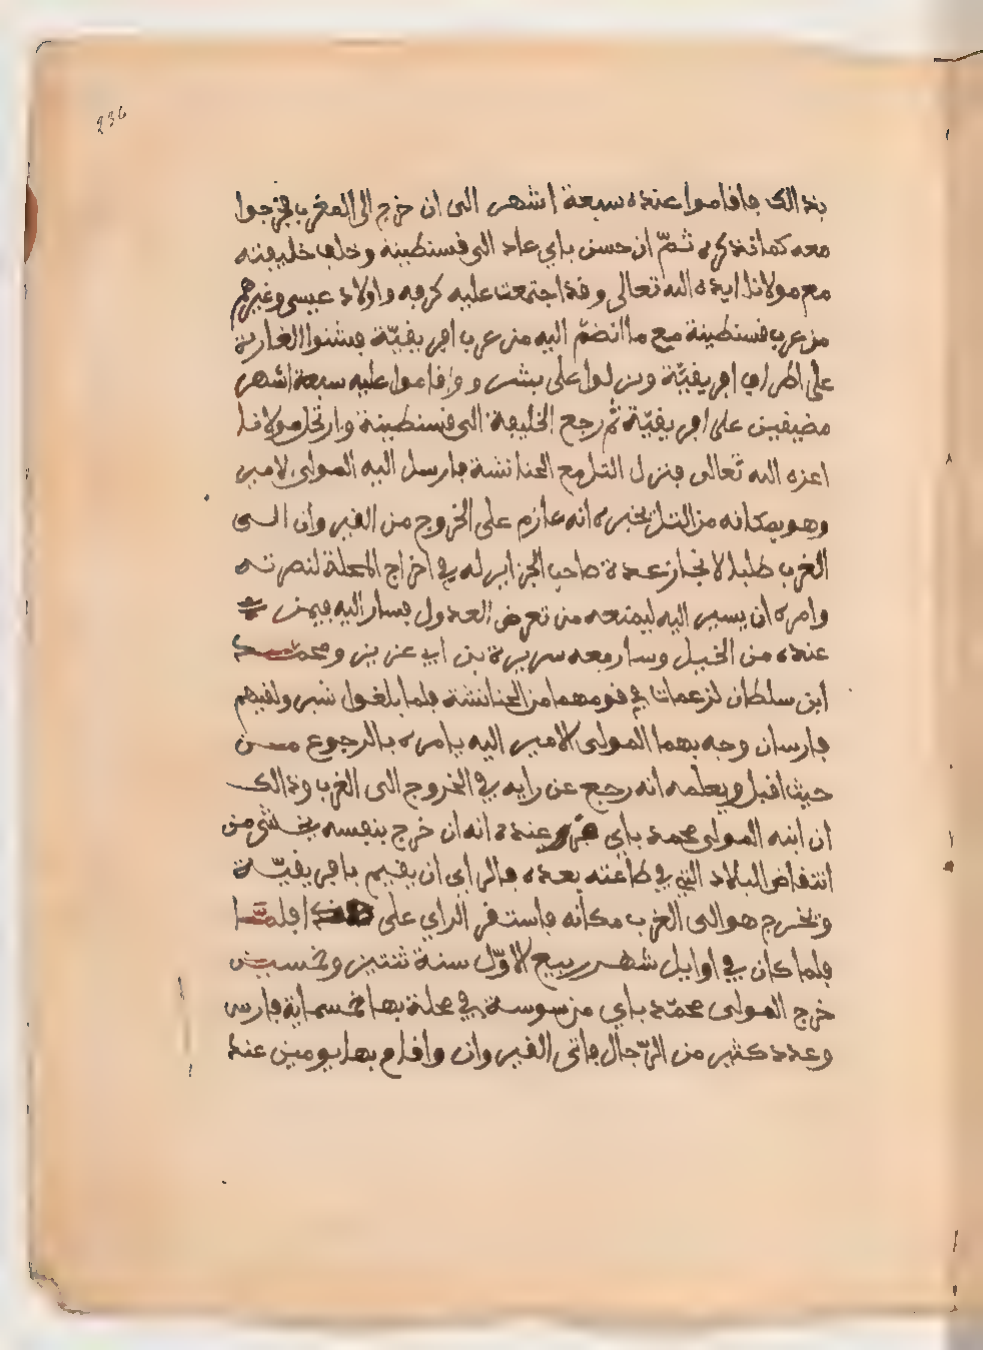 236
بذالك فاقاموا عنده سبعة اشهر الى ان خرج الى المغرب فخرجوا
معه كما نذكره ثمّ ان حسن باي عاد الى قسنطينة وخلف خليفته
مع مولانا ايده الله تعالى وقد اجتمعت عليه كرفه واولاد عيسى وغيرهم
من عرب قسنطينة مع ما انضمّ اليه من عرب افريقيّة فشنوا الغارة
على اطراف افريقيّة ونزلوا على بشر واقاموا عليه سبعة اشهر
مضيفين على افريقيّة ثم رجع الخليفة الى قسنطينة وارتحل مولانا
اعزه الله تعالى فنزل التل مع الحنانشة فارسل اليه المولى الامير
وهو بمكانه من التل يخبره انه عازم على الخروج من القيروان الى
الغرب طلبا لانجاز عدة صاحب الجزاير له في اخراج المحلة لنصرته
وامره ان يسير اليه ليمنعه من تعرض العدول فسار اليه فيمن
عنده من الخيل وسار معه سريرة بن ابي عزيز ومحمد
ابن سلطان لزعمات في قومهما من الحنانشة فلما بلغوا ل شبر ولقيهم
فارسان وجه بهما المولى الامير اليه يامره بالرجوع من
حيث اقبل ويعلمه انه رجع عن رايه في الخروج الى الغرب وذالك
ان ابنه المولى محمد باي عنده انه ان خرج بنفسه يخشى من
انتقاض البلاد التي في طاعته بعده فالراي ان يقيم بافريقيّة
ويخرج هو الى الغرب مكانه فاستقر الراي على
فلما كان في اوايل شهر ربيع الاوّل سنة ثنتين وخمسين
خرج المولى محمّد باي من سوسة في محلة بها خمسماية فارس
وعدد كثير من الرّجال فاتى القيروان واقام بها يومين عند